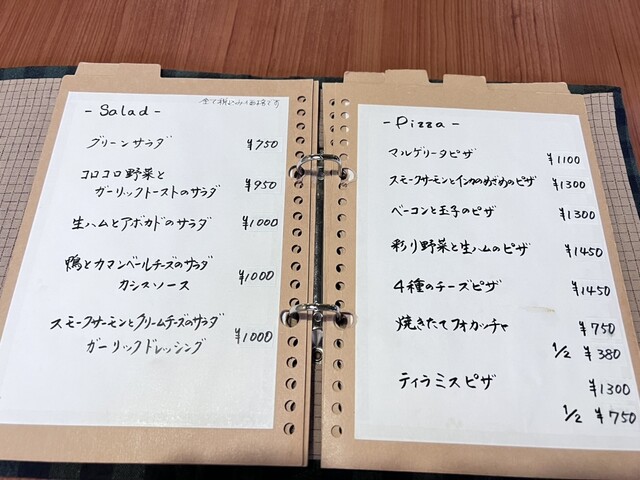 - Salad -
全て税込み価格です
グリーンサラダ ¥750
コロコロ野菜と
ガーリックトーストのサラダ ¥950
生ハムとアボカドのサラダ ¥1000
鴨とカマンベールチーズのサラダ
カシスソース ¥1000
スモークサーモンとクリームチーズのサラダ
ガーリックドレッシング ¥1000
- Pizza -
マルゲリータピザ ¥1100
スモークサーモンとインカのめざめのピザ ¥1300
ベーコンと玉子のピザ ¥1300
彩り野菜と生ハムのピザ ¥1450
4種のチーズピザ ¥1450
焼きたてフォカッチャ ¥750
1/2 ¥380
ティラミスピザ ¥1300
1/2 ¥750